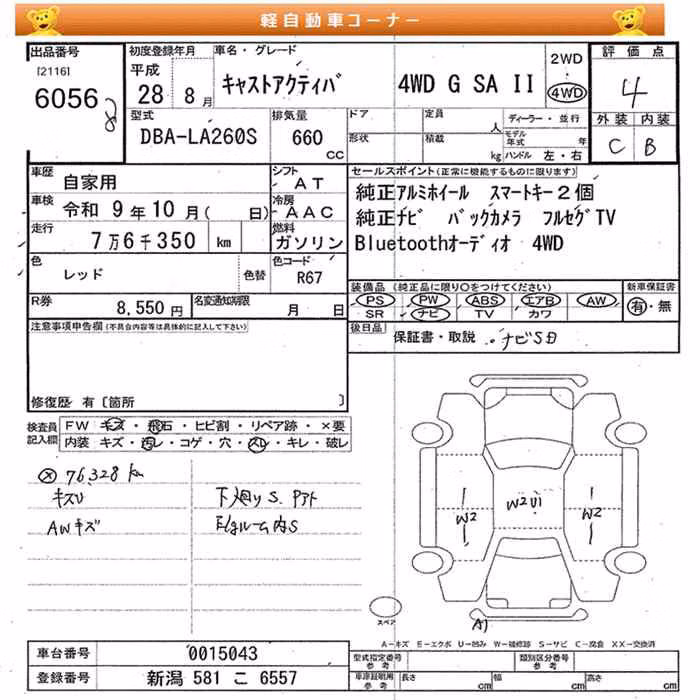 軽自動車コーナー
出品番号
[2116]
6056
初度登録年月
平成
28 8月
車名・グレード
キャストアクティバ 4WD G SA II
2WD
・
4WD
評価点
4
外装 内装
C B
型式
DBA-LA260S
排気量
660
CC
ドア
形状
定員
人
積載
kg
ディーラー・並行
モデル年式 年
ハンドル 左・右
車歴
自家用
シフト
AT
車検
令和 9年10月( 日)
冷房
AAC
走行
7万6千350 km
燃料
ガソリン
色
レッド
色替
色コード
R67
R券
8,550円
名変通知期限
月 日
セールスポイント(正常に機能するものに限ります)
純正アルミホイール スマートキー2個
純正ナビ バックカメラ フルセグTV
Bluetoothオーディオ 4WD
装備品(純正品に限り○をつけてください)
PS PW ABS エアB AW
SR ナビ TV カワ
新車保証書
有・無
後日品
保証書・取説 ・ナビSD
注意事項申告欄(不具合内容等は具体的に記入して下さい)
修復歴 有〔箇所 〕
検査員記入欄
FW キズ・飛石・ヒビ割・リペア跡・×要
内装 キズ・汚レ・コゲ・穴・スレ・キレ・破レ
76,328km
キズU
AWキズ
下廻りS.
内S
W2
W2 U1
W2
A1
スペア
A-キズ E-エクボ U-凹み W-補修跡 S-サビ C-腐食 XX-交換済
車台番号
0015043
登録番号
新潟 581 こ 6557
型式指定番号
参考
類別区分番号
参考
車庫証明用
参考
長さ cm
幅 cm
高さ cm